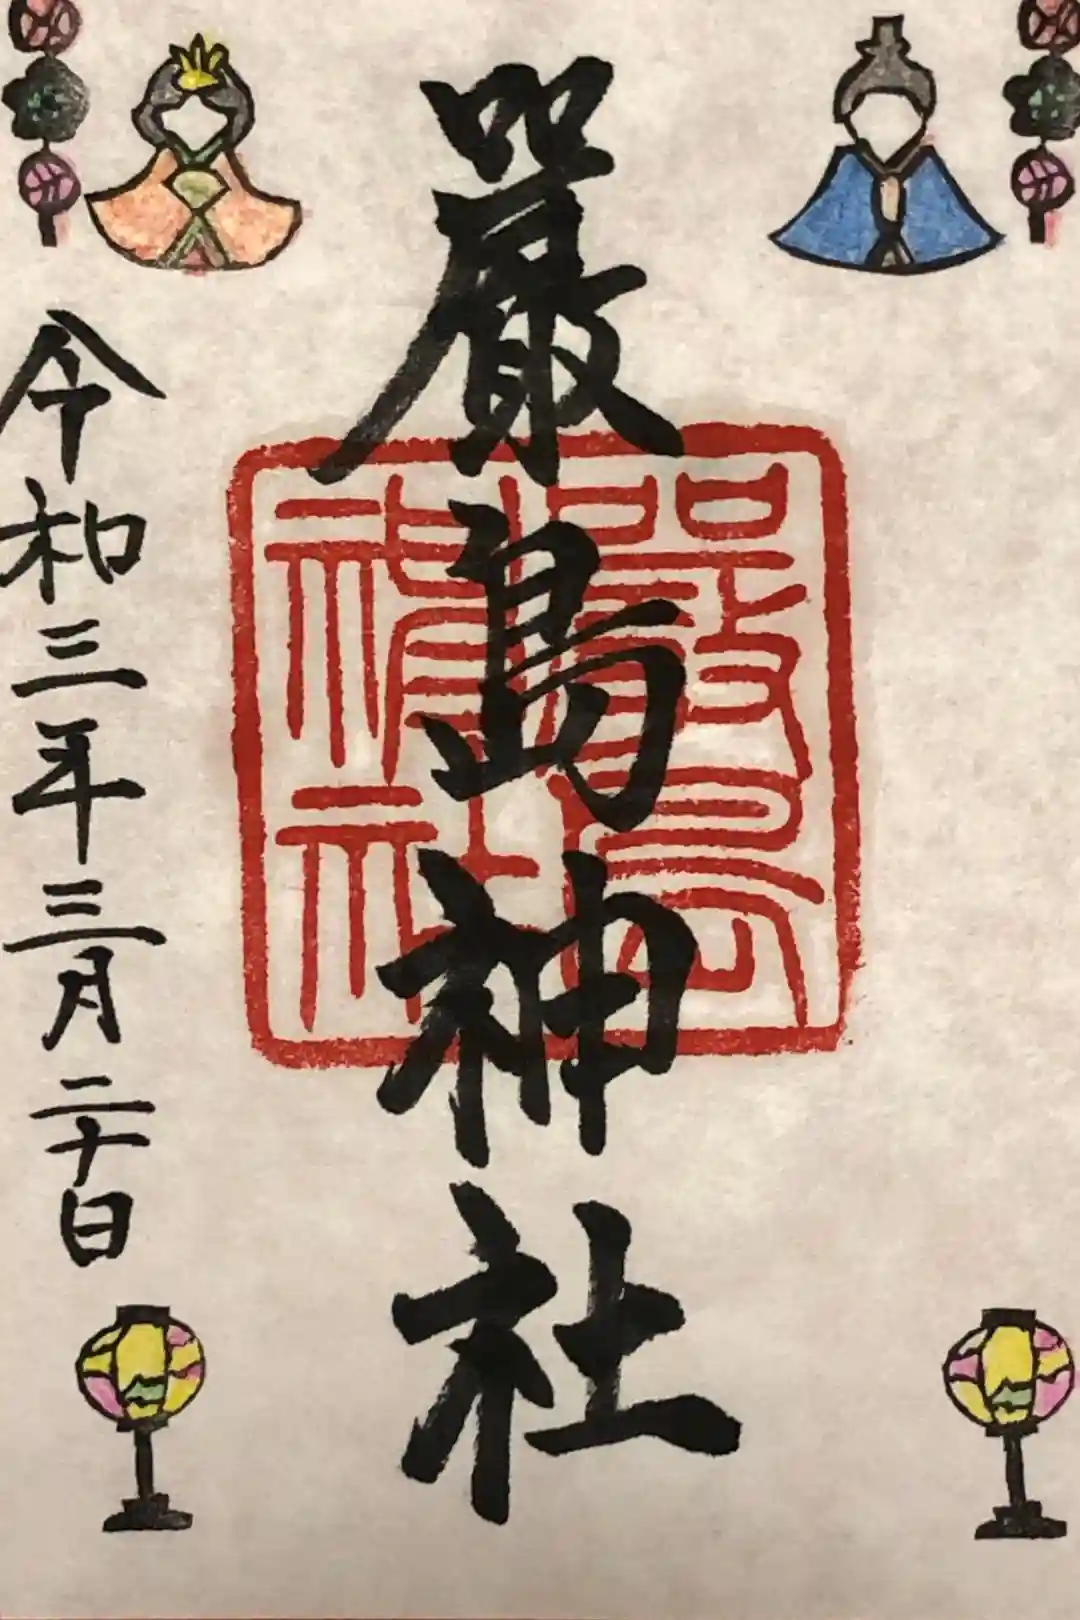 嚴島神社
嚴島
神社
令和三年三月二十日